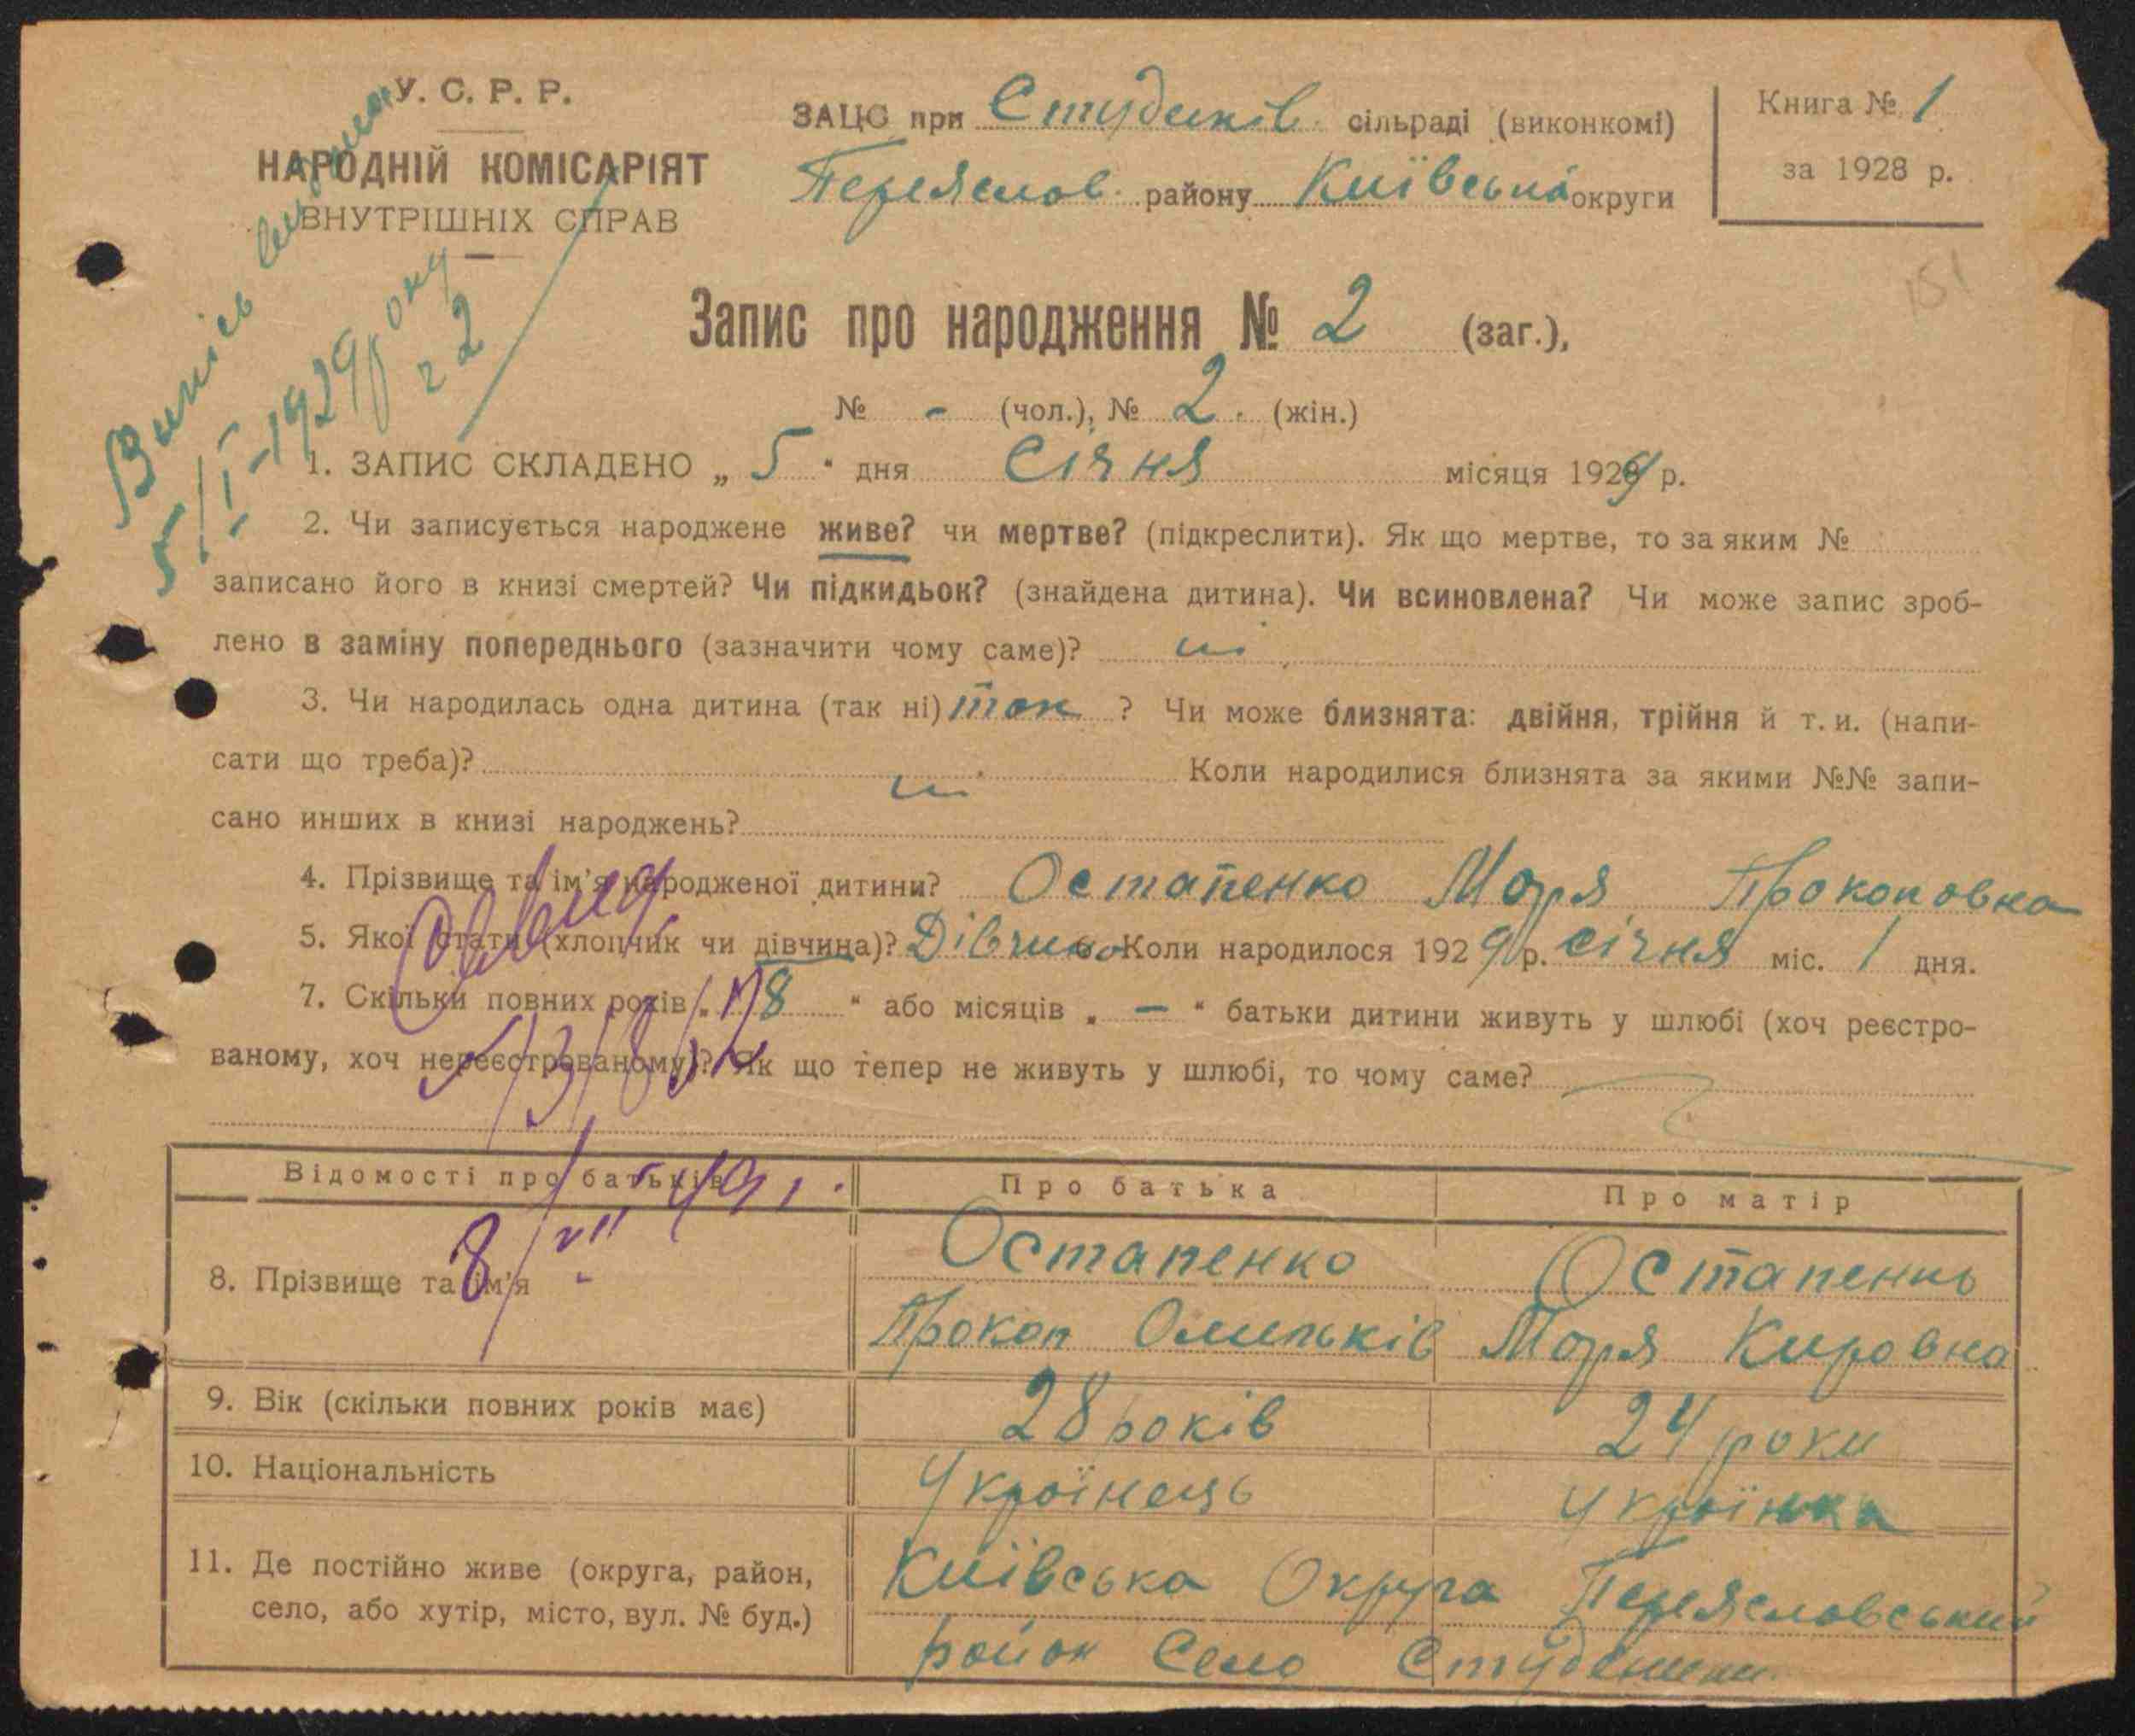 У. С. Р. Р.
НАРОДНІЙ КОМІСАРІЯТ
ВНУТРІШНІХ СПРАВ
ЗАЦС при Студеників сільраді (виконкомі)
Переяслов. району Київська округи
Книга № 1
за 1928 р.
151
Випись видана
5/I-1929 року
г 2
Запис про народження № 2 (заг.),
№ - (чол.), № 2. (жін.)
1. ЗАПИС СКЛАДЕНО „ 5 “ дня Січня місяця 1929 р.
2. Чи записується народжене живе? чи мертве? (підкреслити). Як що мертве, то за яким №
записано його в книзі смертей? Чи підкидьок? (знайдена дитина). Чи всиновлена? Чи може запис зроб-
лено в заміну попереднього (зазначити чому саме)? ні
3. Чи народилась одна дитина (так ні) так ? Чи може близнята: двійня, трійня й т. и. (напи-
сати що треба)? ні Коли народилися близнята за якими №№ запи-
сано инших в книзі народжень?
4. Прізвище та ім’я народженої дитини? Остапенко Маря Прокоповна
5. Якої стати (хлопчик чи дівчина)? Дівчина Коли народилося 1929 р. січня міс. 1 дня.
7. Скільки повних років „ 8 “ або місяців „ — “ батьки дитини живуть у шлюбі (хоч реєстро-
ваному, хоч нереєстрованому)? Як що тепер не живуть у шлюбі, то чому саме?
Відомості про батьків
Про батька
Про матір
8. Прізвище та ім’я
Остапенко
Прокоп Омельків
Остапенко
Маря Кировна
9. Вік (скільки повних років має)
28 років
24 роки
10. Національність
Українець
Українка
11. Де постійно живе (округа, район,
село, або хутір, місто, вул. № буд.)
Київська Округа Переясловський
район Село Студеники